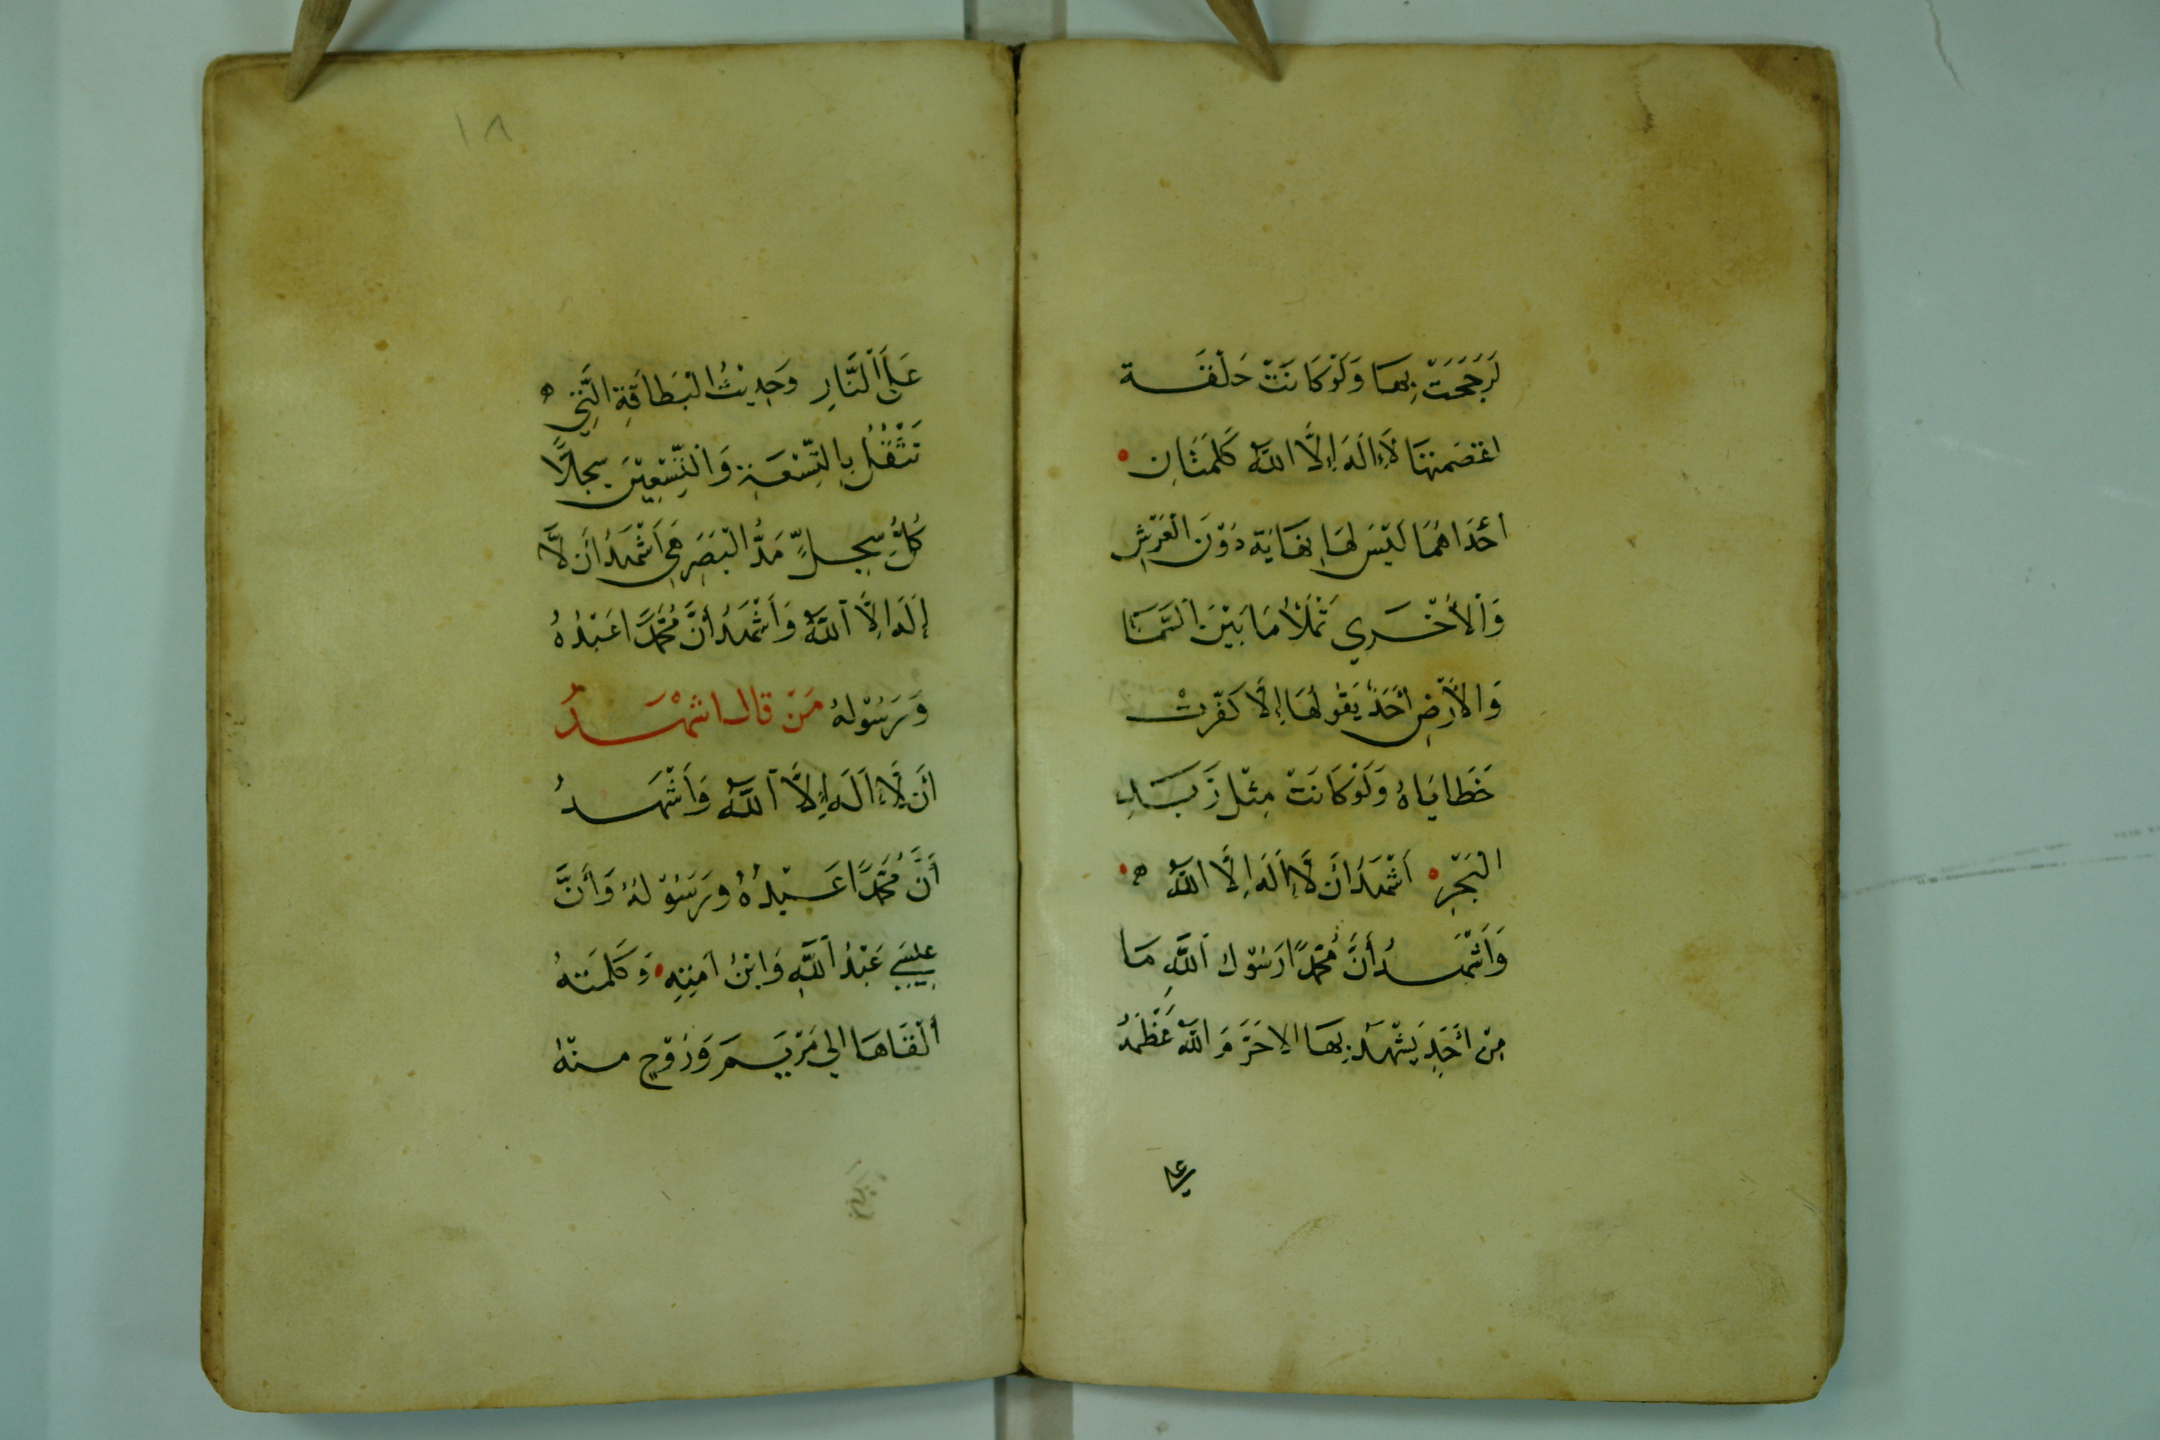 لَرَجَحَتْ بِهَا وَلَوْ كَانَتْ حَلْقَة
اعْتَصَمَتْهَا لَآ اِلَهَ اِلَّا اللَّهُ كَلِمَتَانِ
أَحَدَاهُمَا لَيْسَ لَهَا نِهَايَة دُوْنَ الْعَرْشِ
وَالْأُخْرَي تَمْلَأُ مَا بَيْنَ السَّمَآ
وَالْأَرْضِ أَحَدٌ يَقُولُهَا إِلَّا كَفَّرَتْ
خَطَايَاهُ وَلَوْ كَانَتْ مِثْلَ زَبَدِ
الْبَحْرِ أَشْهَدُ أَنْ لَّا إِلَهَ اِلَّا اللَّهُ
وَأَشْهَدُ أَنَّ مُحَمَّدًا رَسُوْلُ اللَّهِ مَا
مِنْ أَحَدٍ يَشْهَدُ بِهَا الا حَرَّمَهُ اللهُ
على
١٨
عَلَى النَّارِ وَحَدِيْثُ الْبَطَاقَةِ الَّتِي
تَثْقُلُ بِالتِّسْعَةِ وَالتِّسْعِيْنَ سِجِلًّا
كُلُّ سِجِلٍّ مَدُّ الْبَصَرِ هِيَ أَشْهَدُ أَنْ لَّا
إِلَهَ اِلَّا اللَّهُ وَأَشْهَدُ أَنَّ مُحَمَّدًا عَبْدُهُ
وَرَسُوْلُهُ مَنْ قَالَ اشْهَدُ
أَنْ لَّا اِلَهَ إِلَّا اللَّهُ وَأَشْهَدُ
أَنَّ مُحَمَّدًا عَبْدُهُ وَرَسُوْلُهُ وَأَنَّ
عِيْسَى عَبْدُ اللَّهِ وَابْنُ اَمَتِهِ وَكَلِمَتهُ
أَلْقَاهَا الي مَرْيَمَ وَرُوْح مِنْهُ